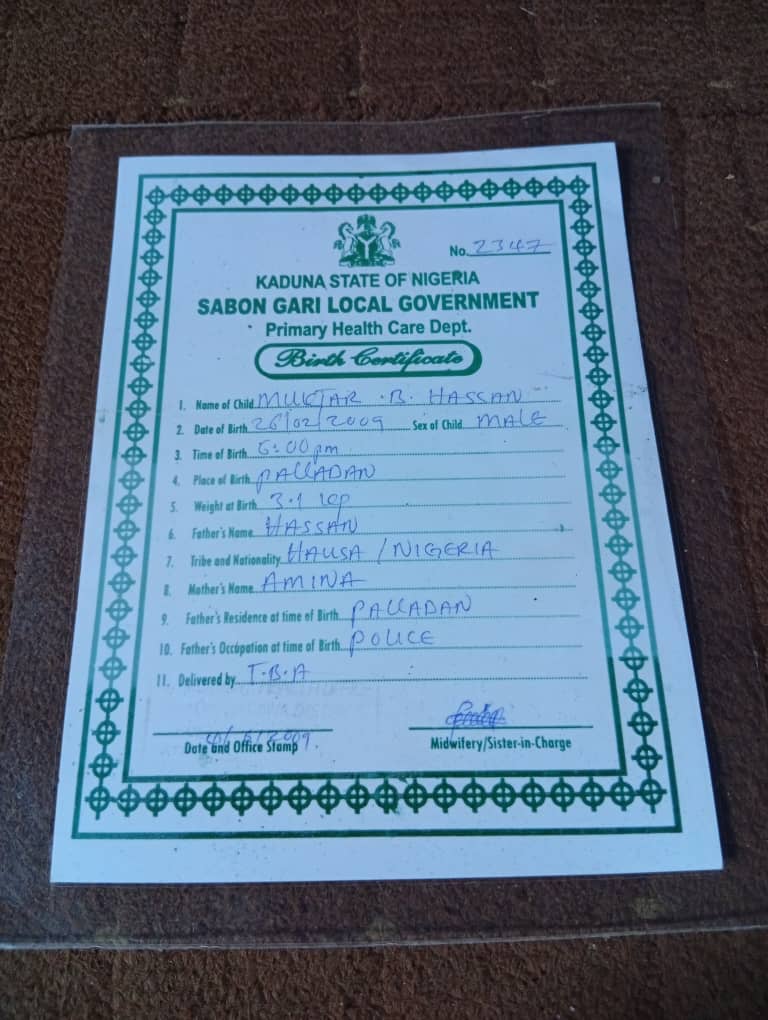 No. 2347
KADUNA STATE OF NIGERIA
SABON GARI LOCAL GOVERNMENT
Primary Health Care Dept.
Birth Certificate
1. Name of Child MUKTAR .B. HASSAN
2. Date of Birth 26/02/2009 Sex of Child MALE
3. Time of Birth 6:00pm
4. Place of Birth PALLADAN
5. Weight at Birth 3.1 kg
6. Father's Name HASSAN
7. Tribe and Nationality HAUSA / NIGERIA
8. Mother's Name AMINA
9. Father's Residence at time of Birth PALLADAN
10. Father's Occupation at time of Birth POLICE
11. Delivered by T.B.A
Date and Office Stamp
Midwifery/Sister-in-Charge